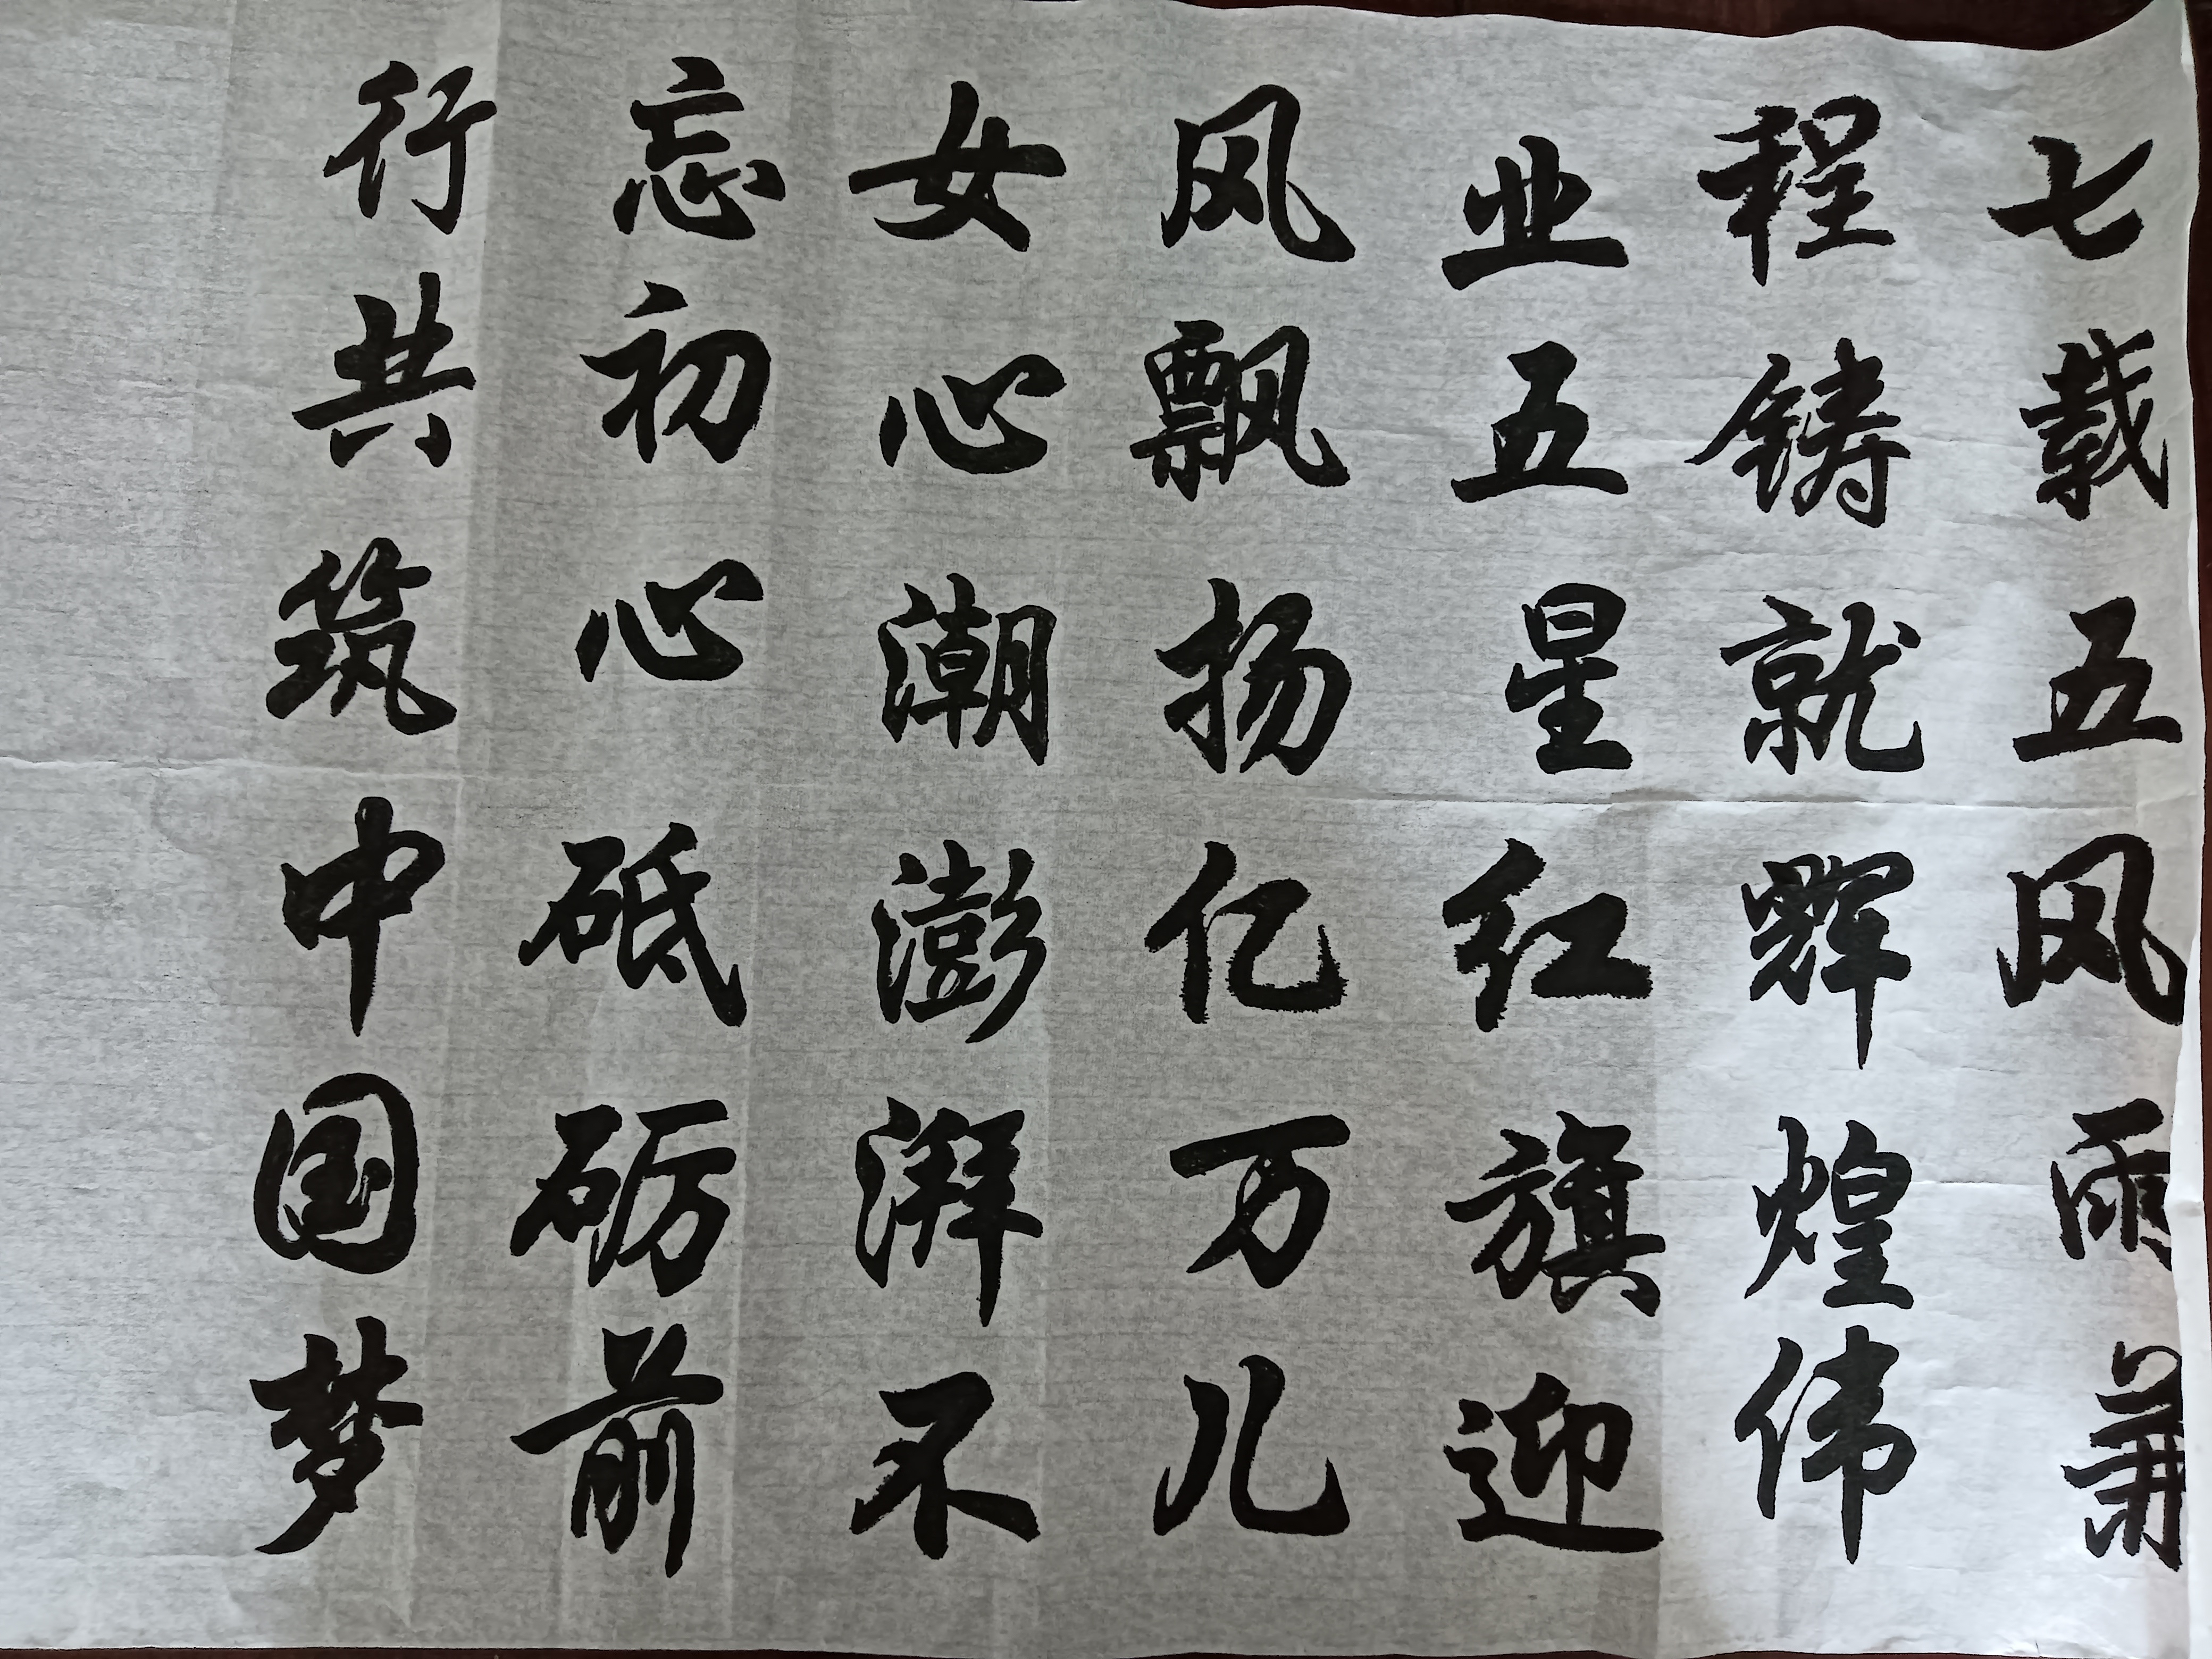 七载五风雨萧
程铸就辉煌伟
业五星红旗迎
风飘扬亿万儿
女心潮澎湃不
忘初心砥砺前
行共筑中国梦